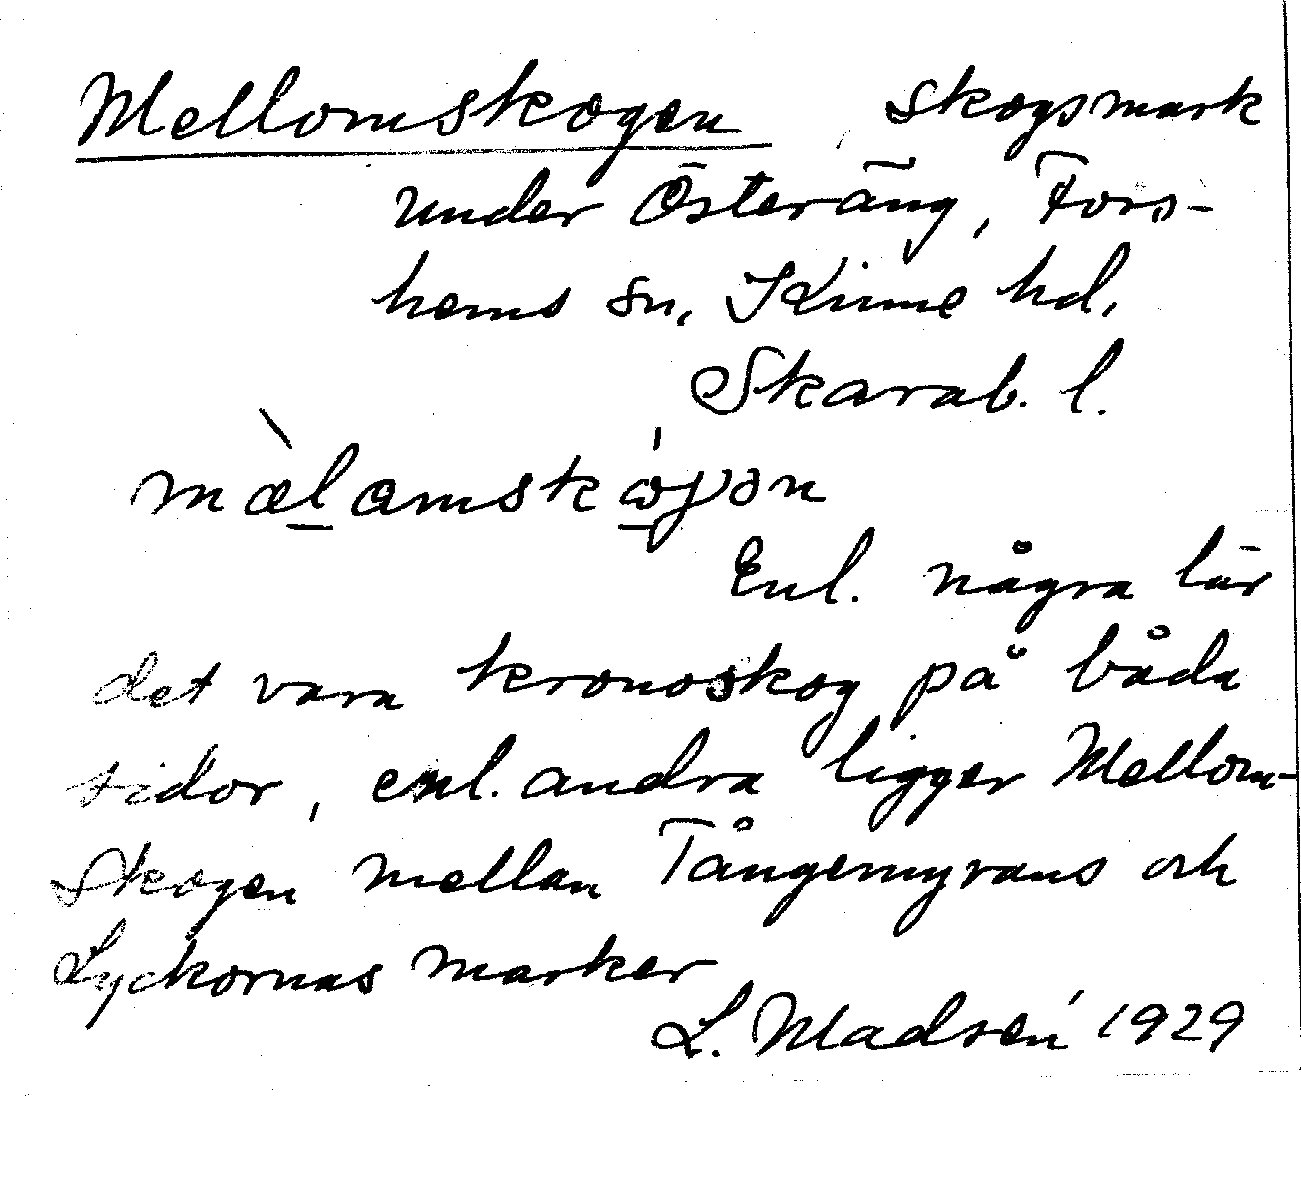 Mellomskogen Skogsmark
under Österäng, Fors-
hems sn, Kinne hd,
Skarab. l.
mæ̀lamskó̱gən
Enl. några lär
det vara kronoskog på båda
sidor, enl. andra ligger Mellom-
Skogen mellan Tångemyrans och
Lyckornas marker
L. Madsén 1929